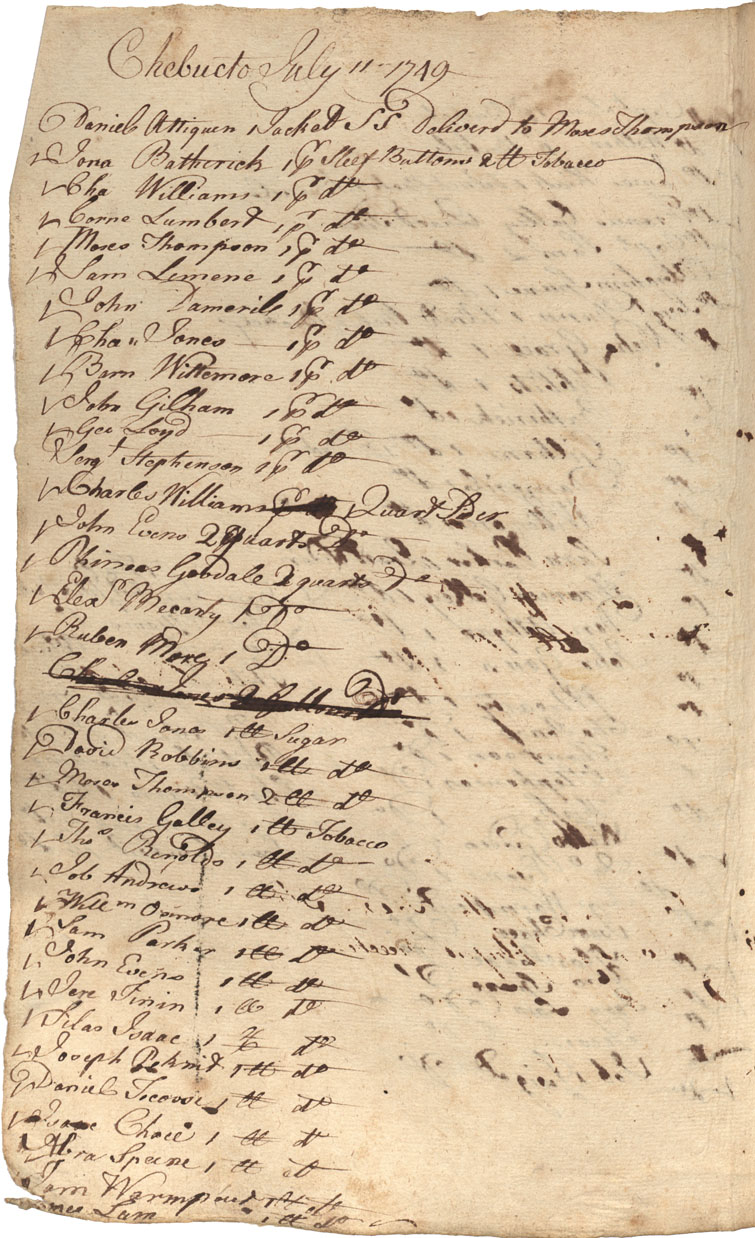 Chebucto July 11 1749
Daniel Attiquin 1 Jacket SS Deliverd to Moses Thompson
Jona Batherick 1 pr Sleef Buttoms 2 tt Tobacco
Cha Williams 1 pr do
Corne Lumbert 1 pr do
Moses Thompson 1 pr do
Sam Limene 1 pr do
John Damerils 1 pr do
Cha Jones 1 pr do
Barn Wittemore 1 pr do
John Gilham 1 pr do
Geo Loyd 1 pr do
Sergt Stephenson 1 pr do
Charles Williams 1 Quart Ber
John Evens 2 Quarts Do
Phineas Goodale 2 quarts Do
Elexr Mecarty 1 Do
Ruben More 1 Do
Charles Jones 2 Do
Charles Jones 1 tt Sugar
David Robbins 1 tt do
Moses Thompson 2 tt do
Francis Galley 1 tt Tobacco
Thos Renolds 1 tt do
Job Andrews 1 tt do
Willm Osmore 1 tt do
Sam Parker 1 tt Do
John Evens 1 tt do
Jere Finin 1 tt do
Silas Isaac 1 tt do
Joseph 1 tt do
Daniel 1 tt do
Isaac Chace 1 tt do
Abra Speene 1 tt do
Sam 1 tt do
Lam 1 tt do